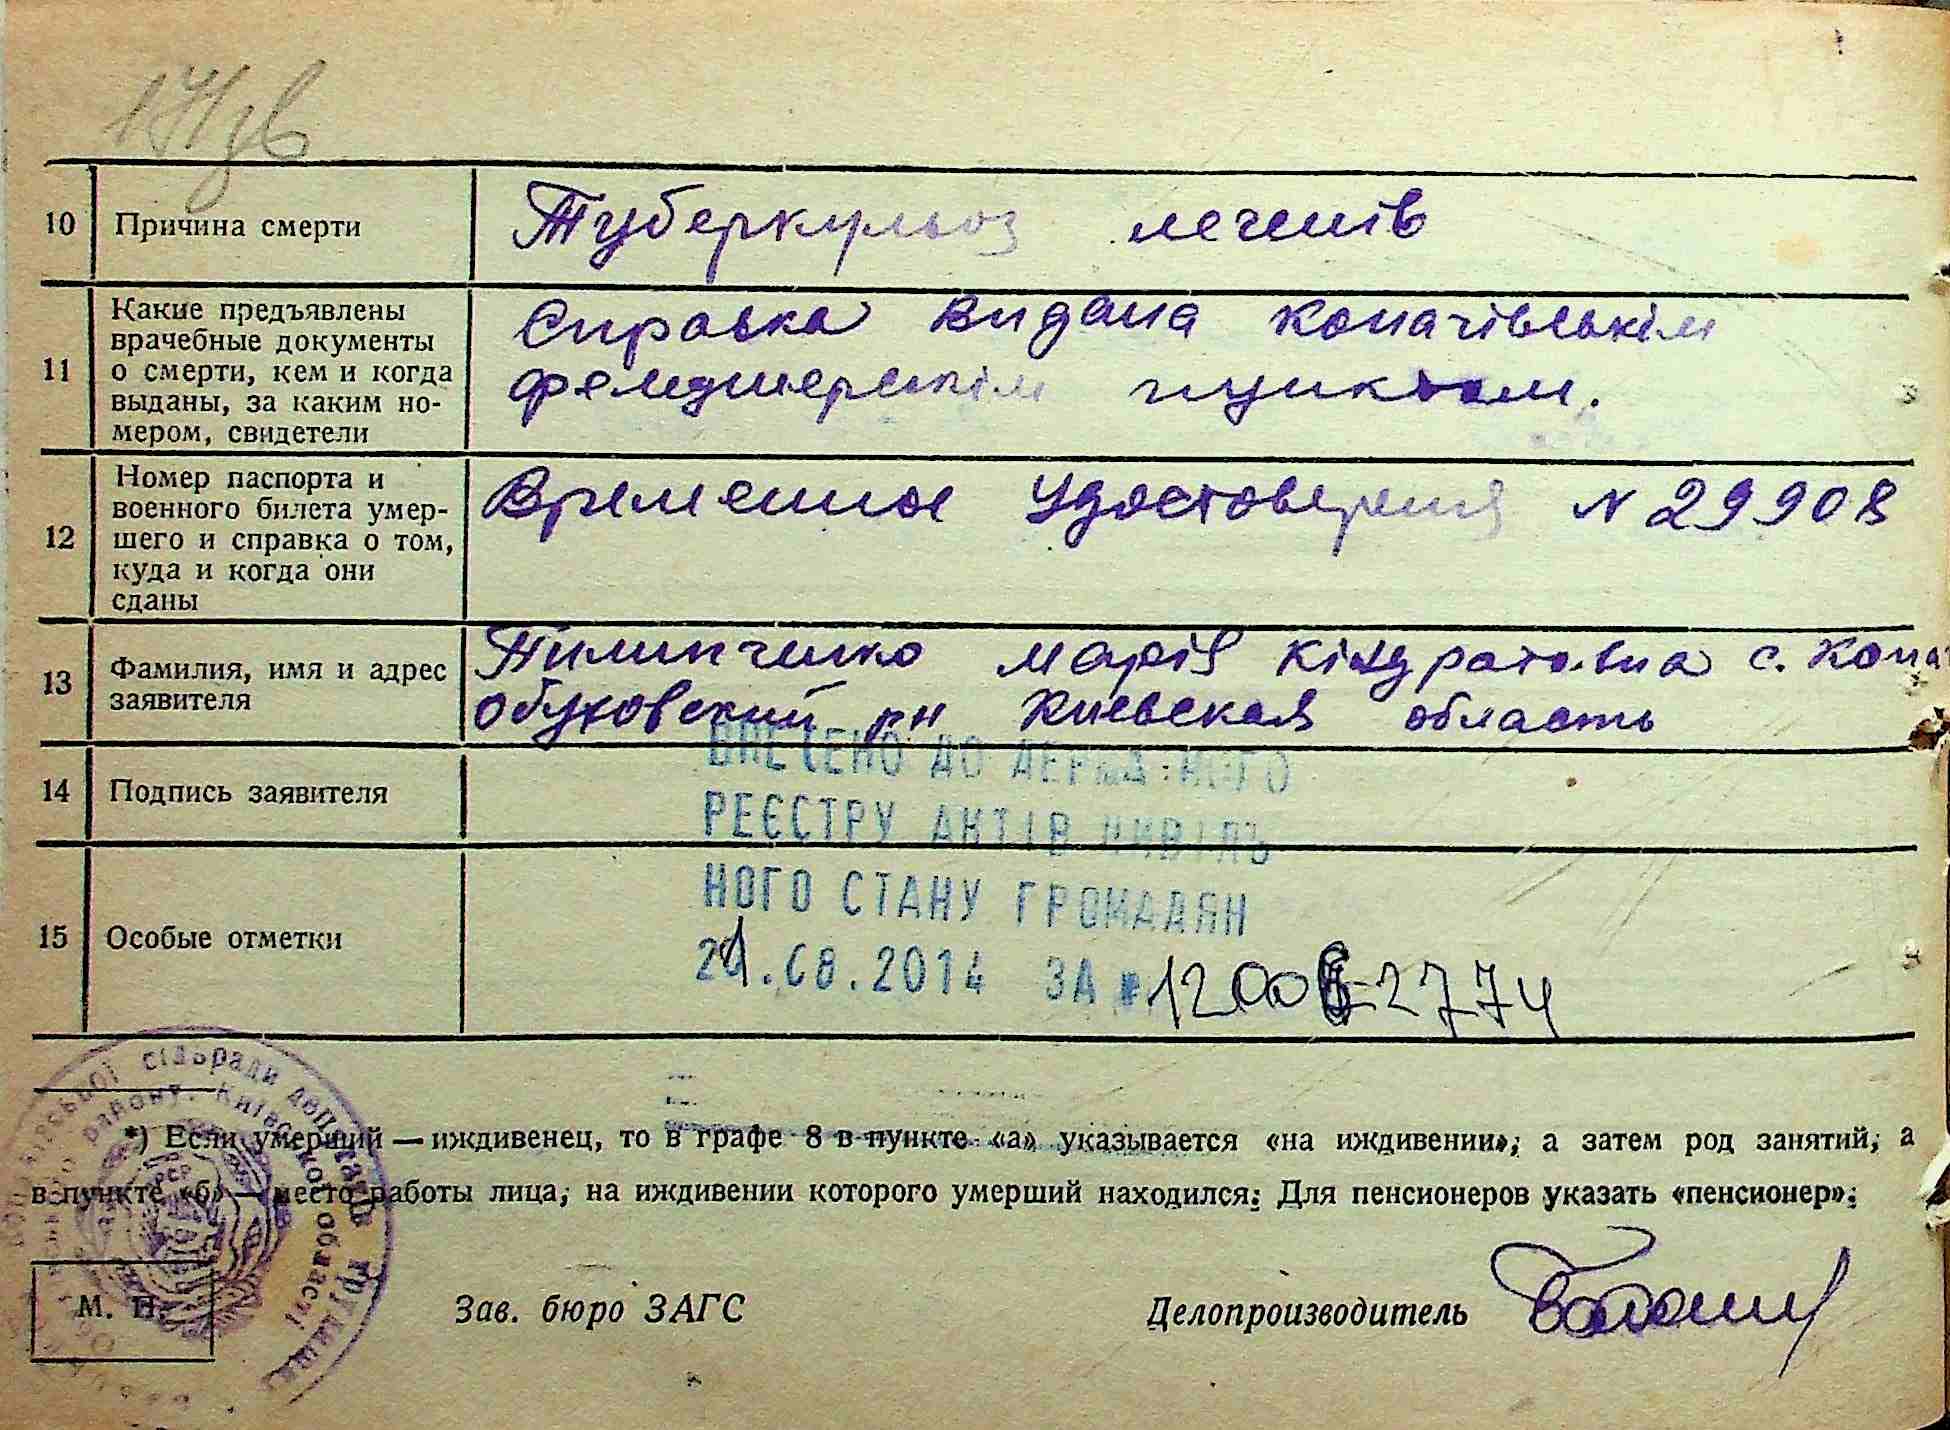 10 Причина смерти Туберкульоз легенів
11 Какие предъявлены
врачебные документы
о смерти, кем и когда
выданы, за каким но-
мером, свидетели
Справка видана Копачівським
фельдшерскім пунктом.
12 Номер паспорта и
военного билета умер-
шего и справка о том,
куда и когда они
сданы
Временное удостоверения N 29908
13 Фамилия, имя и адрес
заявителя
Пилипченко Марія Кіндратовна с. Копа
Обуховский рн Киевская область
14 Подпись заявителя
15 Особые отметки
ВНЕСЕНО ДО ДЕРЖАВНОГО
РЕЄСТРУ АКТІВ ЦИВІЛЬ
НОГО СТАНУ ГРОМАДЯН
21.08.2014 ЗА
сільради депутатів трудящих
району. Київської області
*) Если умерший — иждивенец, то в графе 8 в пункте «а» указывается «на иждивении», а затем род занятий, а
в пункте «б» — место работы лица, на иждивении которого умерший находился. Для пенсионеров указать «пенсионер».
М. П.
Зав. бюро ЗАГС
Делопроизводитель